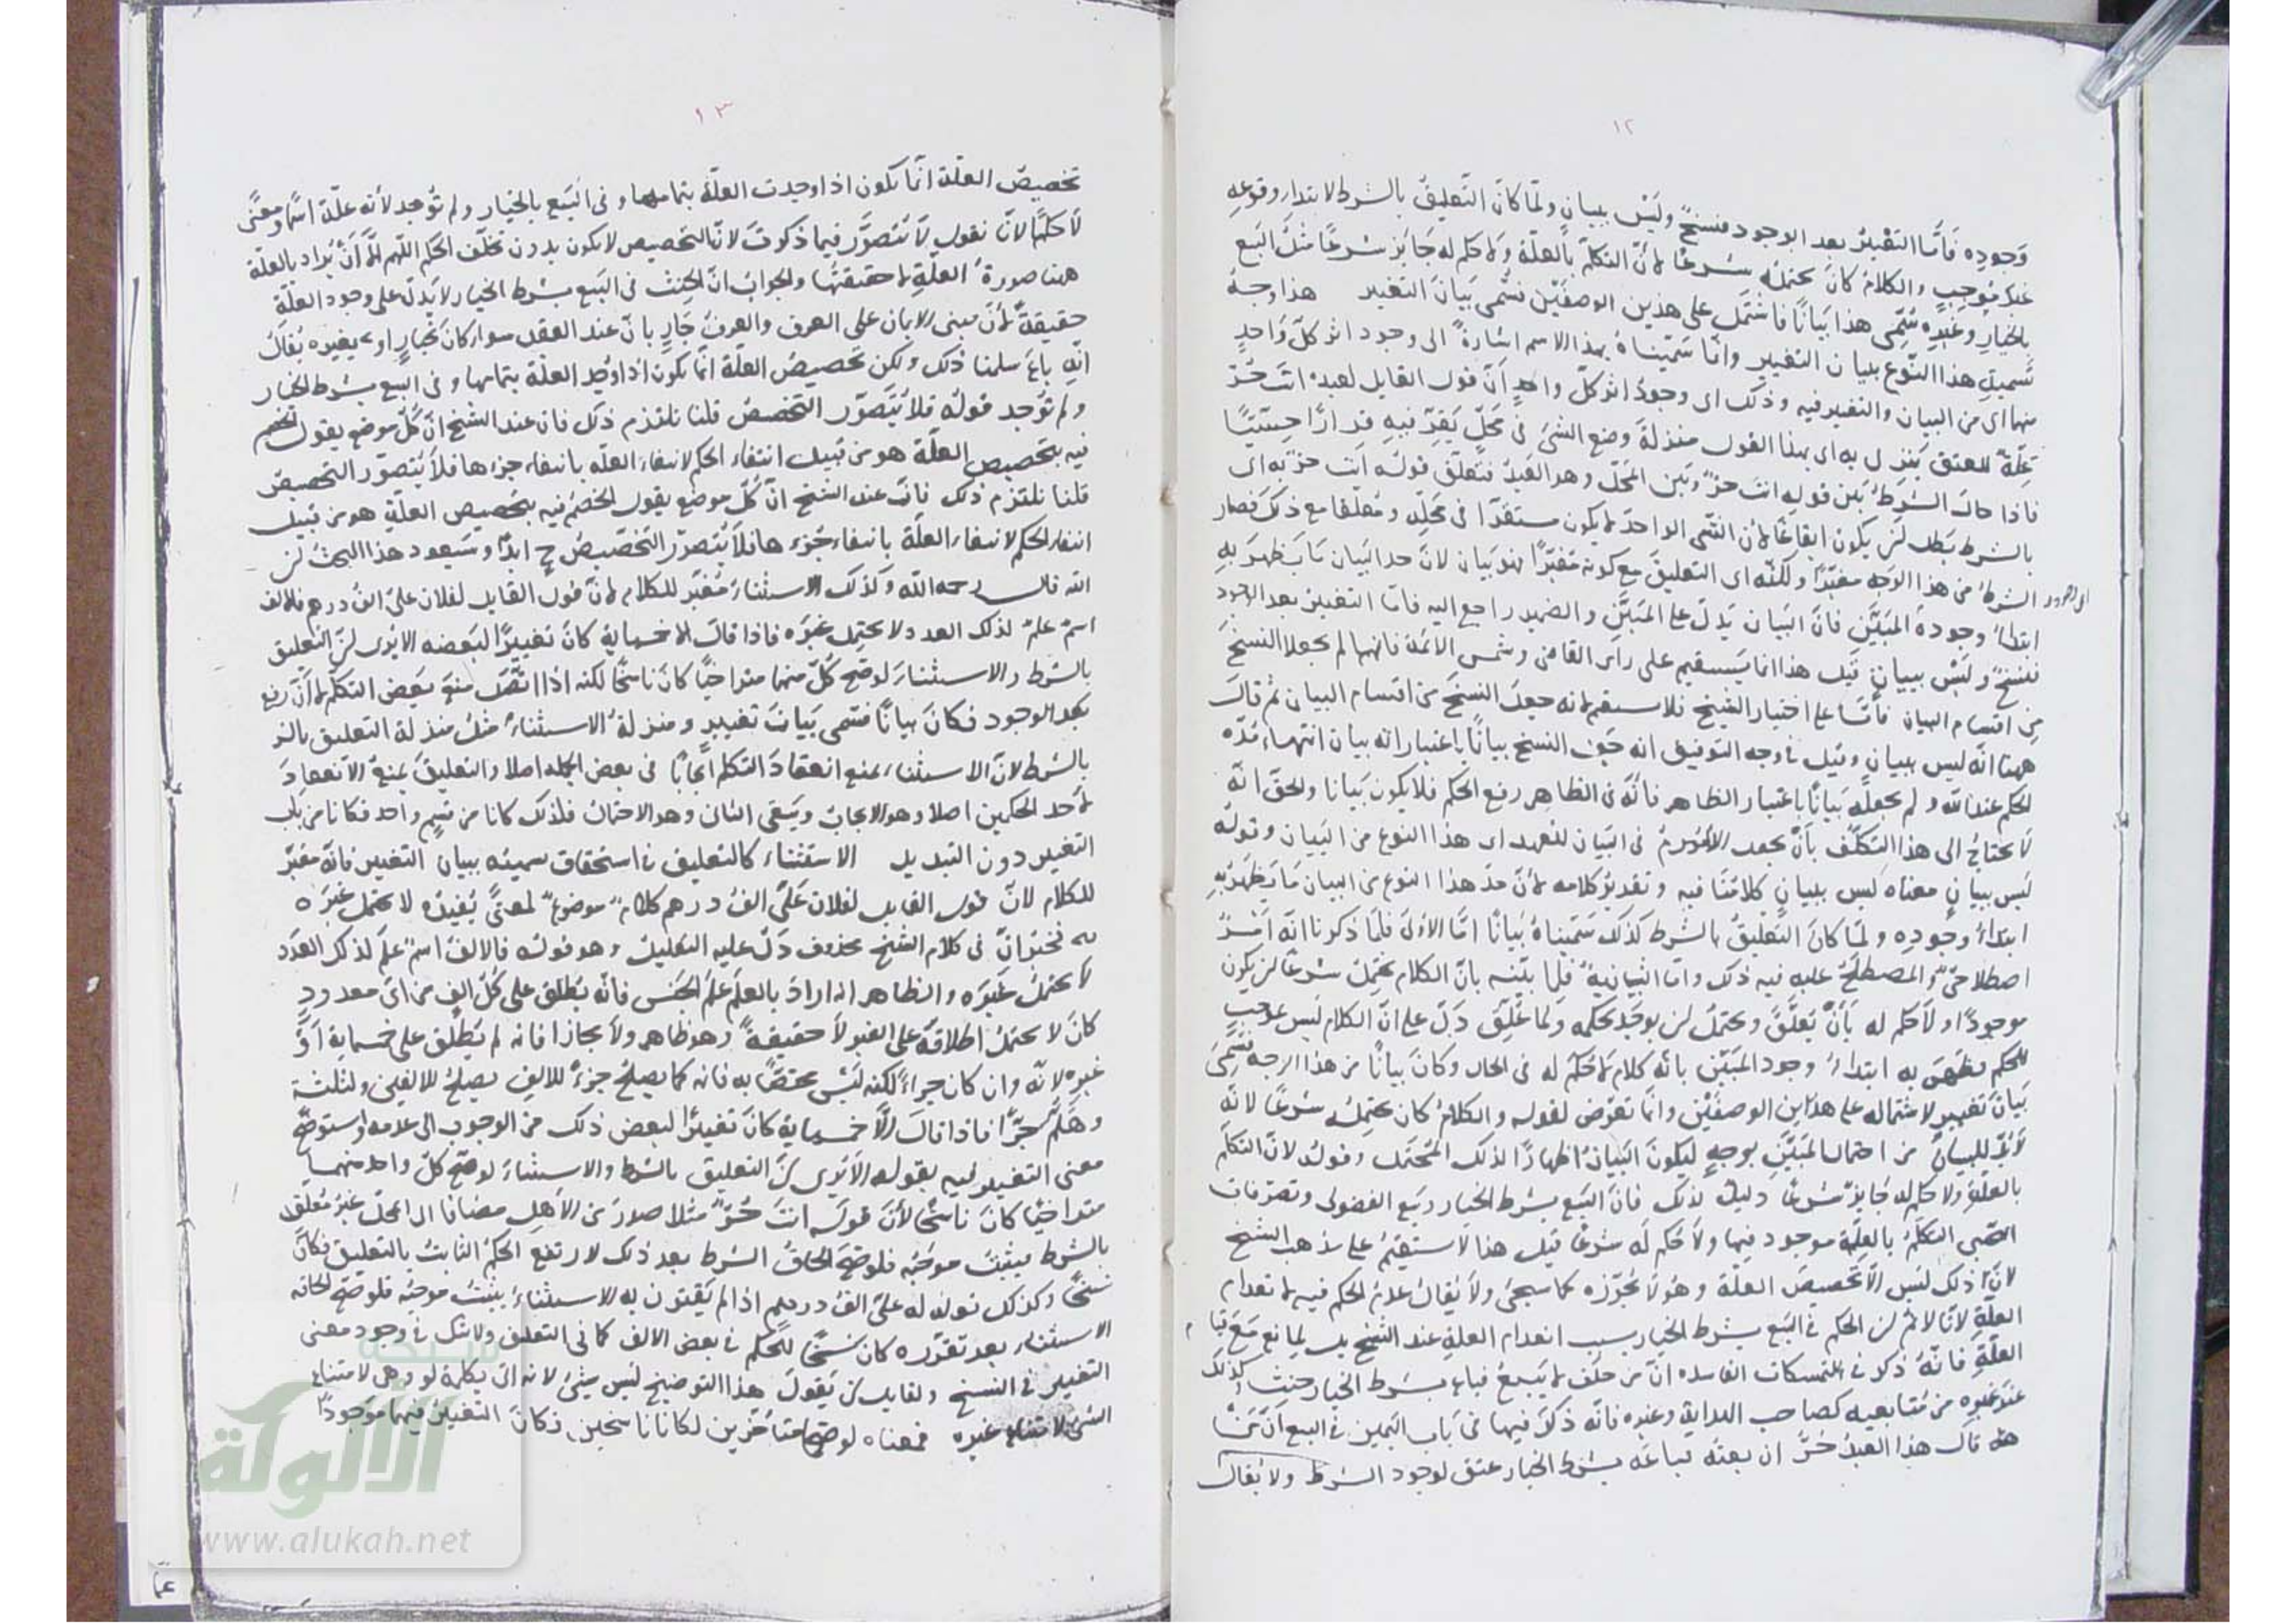 ١٢
وجوده فأما التغيير بعد الوجود فنسخ وليس ببيان ولما كان التعليق بالشرط لابتداء وقوعه
غير موجب والكلام كان يحتمله شرعا لأن التكلم بالعلة ولا حكم له جايز شرعا مثل البيع
بالخيار وغيره سمى هذا بيانا فاشتمل على هذين الوصفين فسمى بيان التغيير هذا وجه
تسمية هذا النوع ببيان التغيير وانما سميناه بهذا الاسم اشارة الى وجود اثر كل واحد
منهما اى من البيان والتغيير فيه وذلك اى وجود اثر كل واحد أن قول القايل لعبده انت حر
علة للعتق ينزل به اى بهذا القول منزلة وضع الشئ فى محل يقر فيه قرارا حسيا
فاذا حال الشرط بين قوله انت حر وبين المحل وهو العبد فتعلق قوله انت حر به اى
بالشرط بطل لن يكون ايقاعا لان الشئ الواحد لا يكون مستقرا فى محله ومعلقا مع ذلك فصار
الشرط من هذا الوجه مغيرا ولكنه اى التعليق مع كونه مغيرا فهو بيان لان حد البيان ما يظهر به
ابتداء وجود المبين فان البيان يدل على المبين والضمير راجع اليه فاما التغيير بعد الوجود
فنسخ وليس ببيان قيل هذا انما يستقيم على راى القاضى وشمس الائمة فانهما لم يجعلا النسخ
من اقسام البيان فأما على اختيار الشيخ فلا يستقيم لانه جعل النسخ من اقسام البيان ثم قال
ههنا انه ليس ببيان وقيل فى وجه التوفيق انه جعل النسخ بيانا باعتبار انه بيان انتهاء مدة
الحكم عند الله ولم يجعله بيانا باعتبار الظاهر فانه فى الظاهر رفع الحكم فلا يكون بيانا والحق انه
لا يحتاج الى هذا التكلف بأن يجعل اللام فى البيان للعهد اى هذا النوع من البيان وقوله
ليس ببيان معناه ليس ببيان كلامنا فيه وتقدير كلامه لأن حد هذا النوع من البيان ما يظهر به
ابتداء وجوده ولما كان التعليق بالشرط كذلك سميناه بيانا اما الاولى فلما ذكرنا انه أمر
اصطلاحى والمصطلح عليه فيه ذلك واما الثانية فلما بينه بان الكلام يحتمل شرعا لن يكون
موجودا ولا حكم له بأن تعلق ويحتمل لن يوجد بحكمه ولما علق دل على ان الكلام ليس بموجب
للحكم فظهر به ابتداء وجود المبين بانه كلام لا حكم له فى الحال وكان بيانا من هذا الوجه فسمى
بيان تغيير لاشتماله على هذين الوصفين وانما تعرض لقوله والكلام كان يحتمله شرعا لانه
لا بد للبيان من احتمال المبين بوجه ليكون البيان اظهارا لذلك المحتمل وقوله لان التكلم
بالعلة ولا حكم له جايز شرعا دليل لذلك فان البيع بشرط الخيار وبيع الفضولى وتصرفات
الصبى التكلم بالعلة موجود فيها ولا حكم له شرعا قيل هذا لا يستقيم على مذهب الشيخ
لان ذلك ليس الا تخصيص العلة وهو لا يجوزه كما سيجئ ولا يقال عدم الحكم فيه لانعدام
العلة لانا لا نم لن الحكم فى البيع بشرط الخيار بسبب انعدام العلة عند الشيخ بل لمانع مع قيام
العلة فانه ذكر فى التمسكات الفاسدة ان من حلف لا يبيع فباع بشرط الخيار حنث وكذلك
عند غيره من متابعيه كصاحب الهداية وغيره فانه ذكر فيها فى باب اليمين فى البيع أن من
قال هذا العبد حر ان بعته فباعه بشرط الخيار عتق لوجود الشرط ولا يقال
١٣
تخصيص العلة انما يكون اذا وجدت العلة بتمامها وفى البيع بالخيار ولم توجد لأنه علة اسما ومعنى
لا حكما لانا نقول لا نتصور فيما ذكرت لان التخصيص لا يكون بدون تخلف الحكم اللهم الا أن يراد بالعلة
ههنا صورة العلة لا حقيقتها والجواب ان الحنث فى البيع بشرط الخيار لا يدل على وجود العلة
حقيقة لأن مبنى الايمان على العرف والعرف جار بان عند العقد سواء كان بخيار او بغيره يقال
انه باع سلمنا ذلك ولكن تخصيص العلة انما يكون اذا وجد العلة بتمامها وفى البيع بشرط الخيار
ولم توجد قوله فلا يتصور التخصيص قلنا نلتزم ذلك فان عند الشيخ ان كل موضع يقول الخصم
فيه بتخصيص العلة هو من قبيل انتفاء الحكم لانتفاء العلة بانتفاء جزءها فلا يتصور التخصيص
قلنا نلتزم ذلك فان عند الشيخ ان كل موضع يقول الخصم فيه بتخصيص العلة هو من قبيل
انتفاء الحكم لانتفاء العلة بانتفاء جزءها فلا يتصور التخصيص ح ابدا وسيعود هذا البحث لن
الله قال رحمه الله وكذلك الاستثناء مغير للكلام لان قول القايل لفلان على الف درهم فالالف
اسم علم لذلك العدد لا يحتمل غيره فاذا قال الا خمسماية كان تغييرا لبعضه الا يرى لن التعليق
بالشرط والاستثناء لو صح كل منهما متراخيا كان ناسخا لكنه اذا اتصل منع بعض التكلم لا أن رفع
بعد الوجود فكان بيانا فسمى بيان تغيير ومنزلة الاستثناء مثل منزلة التعليق بالشر
بالشرط لان الاستثناء يمنع انعقاد التكلم ايجابا فى بعض الجملة اصلا والتعليق يمنع الانعقاد
لأحد الحكمين اصلا وهو الايجاب ويبقى الثانى وهو الاحتمال فلذلك كانا من قسم واحد فكانا من باب
التغيير دون التبديل الاستثناء كالتعليق فى استحقاق تسميته ببيان التغيير فانه مغير
للكلام لان قول القايل لفلان على الف درهم كلام موضوع لمعنى يفيده لا يحتمل غيره
فى كلام الشيخ محذوف دل عليه التعليل وهو قوله فالالف اسم علم لذلك العدد
لا يحتمل غيره والظاهر انه اراد بالعلم علم الجنس فانه يطلق على كل الف من اى معدود
كان لا يحتمل اطلاقه على الغير لا حقيقة وهو ظاهر ولا مجازا فانه لم يطلق على خمسماية أو
غيره لانه وان كان جزاء لكنه ليس مختصا به فانه كما يصلح جزء للالف يصلح للالفين ولثلثة
وهلم جرا فاذا قال الا خمسماية كان تغييرا لبعض ذلك من الوجوب الى عدمه واستوضح
معنى التغيير فيه بقوله الا يرى لن التعليق بالشرط والاستثناء لو صح كل واحد منهما
متراخيا كان ناسخا لأن قوله انت حر مثلا صدر من الاهل مضافا الى المحل غير معلق
بالشرط يثبت موجبه فلو صح الحاق الشرط بعد ذلك لارتفع الحكم الثابت بالتعليق فكان
نسخا وكذلك قوله له على الف درهم اذا لم يقترن به الاستثناء يثبت موجبه فلو صح لحاقه
الاستثناء بعد تقرره كان نسخا للحكم فى بعض الالف كما فى التعليق ولا شك فى وجود معنى
التغيير فى النسخ ولقايل لن يقول هذا التوضيح ليس بشئ لانه اتى بكلمة لو وهى لامتناع
الشئ لامتناع غيره فمعناه لو صح متأخرين لكانا ناسخين فكان التغيير فيهما موجودا
شبكة
الألوكة
www.alukah.net